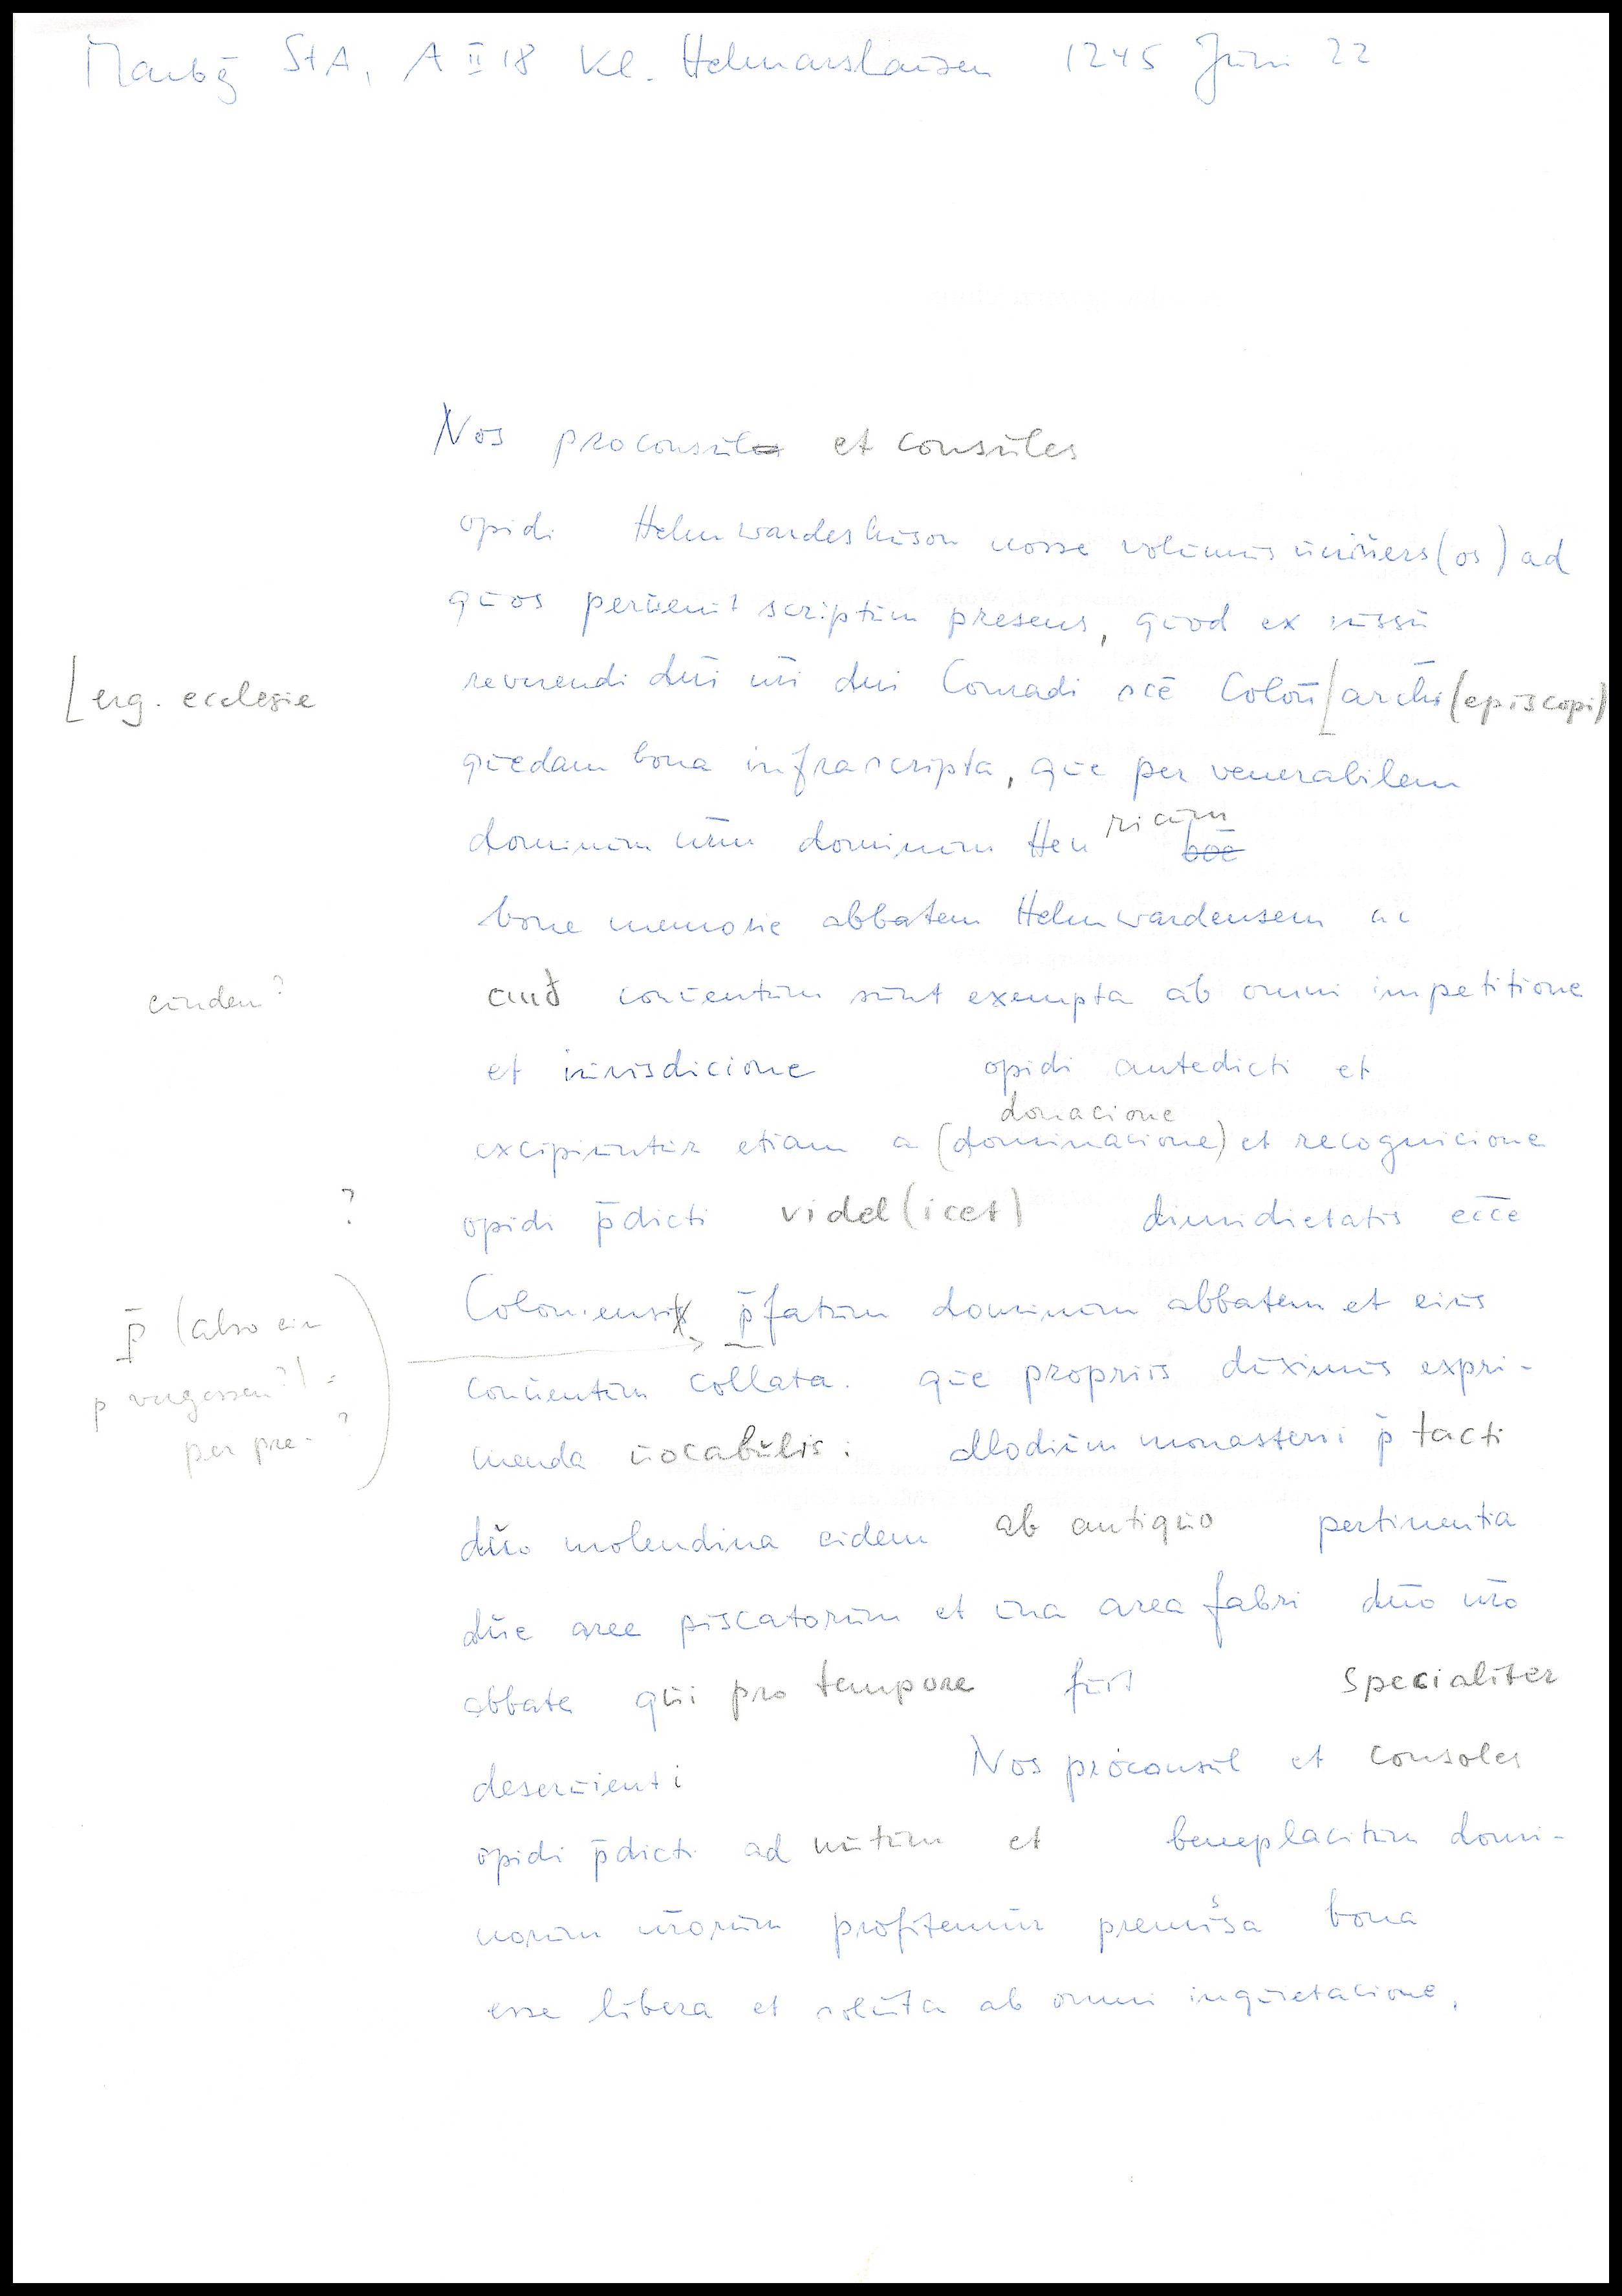 Marbg StA, A II 18 Kl. Helmarshausen 1245 Juni 22
Nos proconsul et consules
opidi Helmwardeshuson nosse volumus univers(os) ad
quos pervenit scriptum presens, quod ex iussu
[erg. ecclesie
reverendi dni nri dni Conradi sce Colon [archi(episcopi)
quedam bona infrascripta, que per venerabilem
dominum nrm dominum Henricum boe
bone memorie abbatem Helmwardensem ac
eundem?
conventum sunt exempta ab omni impetitione
et iurisdicione opidi antedicti et
donacione
excipiuntur etiam a (dominacione) et recognicione
?
opidi p̄dicti videl(icet) dimidietatis ecce
Coloniensis p̄fatum dominum abbatem et eius
p̄ (also ein
p vergessen?) =
per pre-?
conventum collata. que propriis duximus expri-
menda vocabulis: allodium monasterii p̄ tacti
duo molendina eidem ab antiquo pertinentia
due aree piscatorum et una area fabri dno nro
abbate qui pro tempore fuit specialiter
deservienti Nos proconsul et consoles
opidi p̄dicti ad nutum et beneplacitum domi-
norum nrorum profitemur premissa bona
esse libera et soluta ab omni inquietacione,